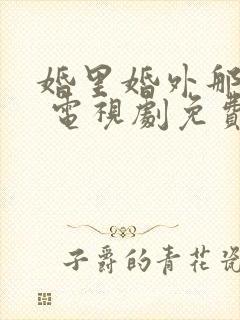 婚里婚外那
電視劇免費
子爵的青花瓷